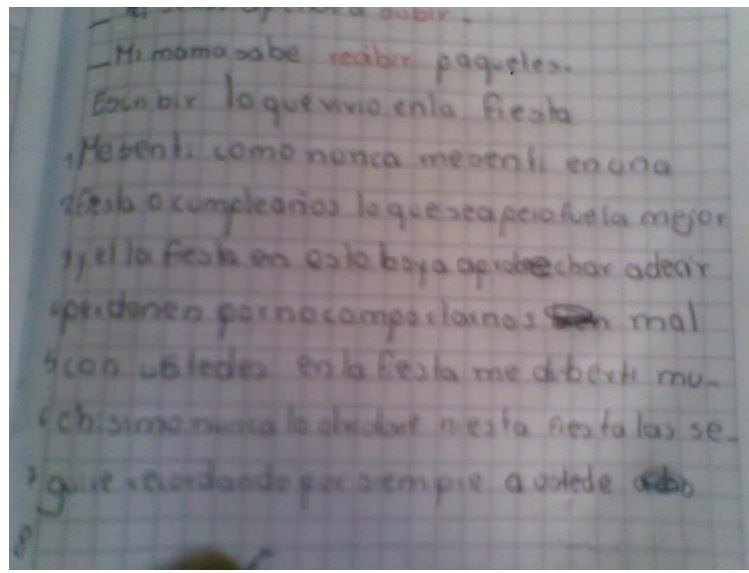 subir.
_Mi mama sabe recibir paqueles.
Escribir lo que vivio en la fiesta
1, Mesenti como nonca mesenti en una
2 fiesta o cumpleaños lo que sea pero fue la mejor
3 y el la fiesta en esto boya aprobechar adecir
4 perdonen por no comportarnos mal
5 con ustedes en la fiesta me diberti mu-
6 chisimo nunca la olvidare n esta fiesta las se-
7 guire recordando por siempre a ustede
8